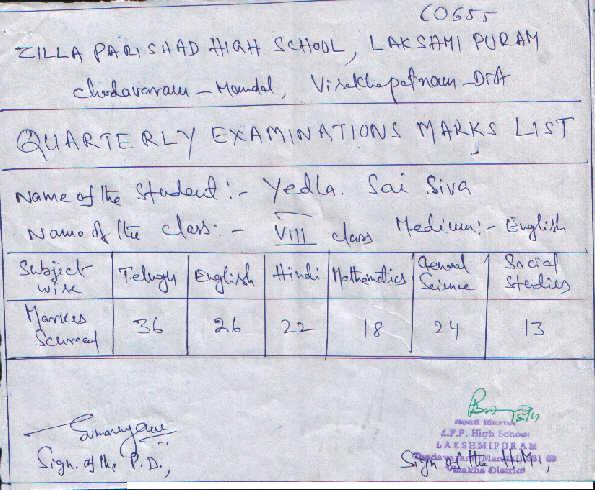 C0655
ZILLA PARISHAD HIGH SCHOOL, LAKSHMI PURAM
Chodavaram - Mandal, Visakhapatnam - Dist
QUARTERLY EXAMINATIONS MARKS LIST
Name of the Student :- Yedla. Sai Siva
Name of the class :- VIII class Medium :- English
Subject wise Telugu English Hindi Mathematics General Science Social Studies
Marks Scurred 36 26 22 18 24 13
Sign. of the P.D.,
Sign of the H.M,
Head Master
Z.P.P. High School
LAKSHMIPURAM
Visakha District